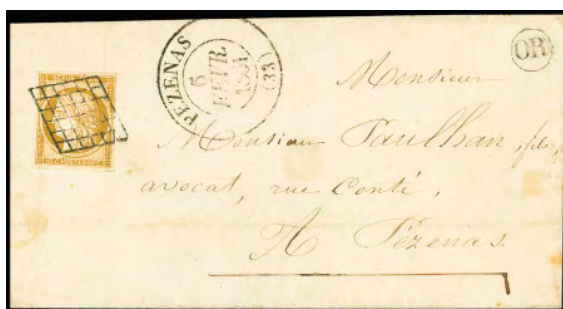 PEZENAS
6
FEVR.
1851
(33)
OR
Monsieur
Monsieur Paulhan, fils,
avocat, rue Conti,
A Pézenas.